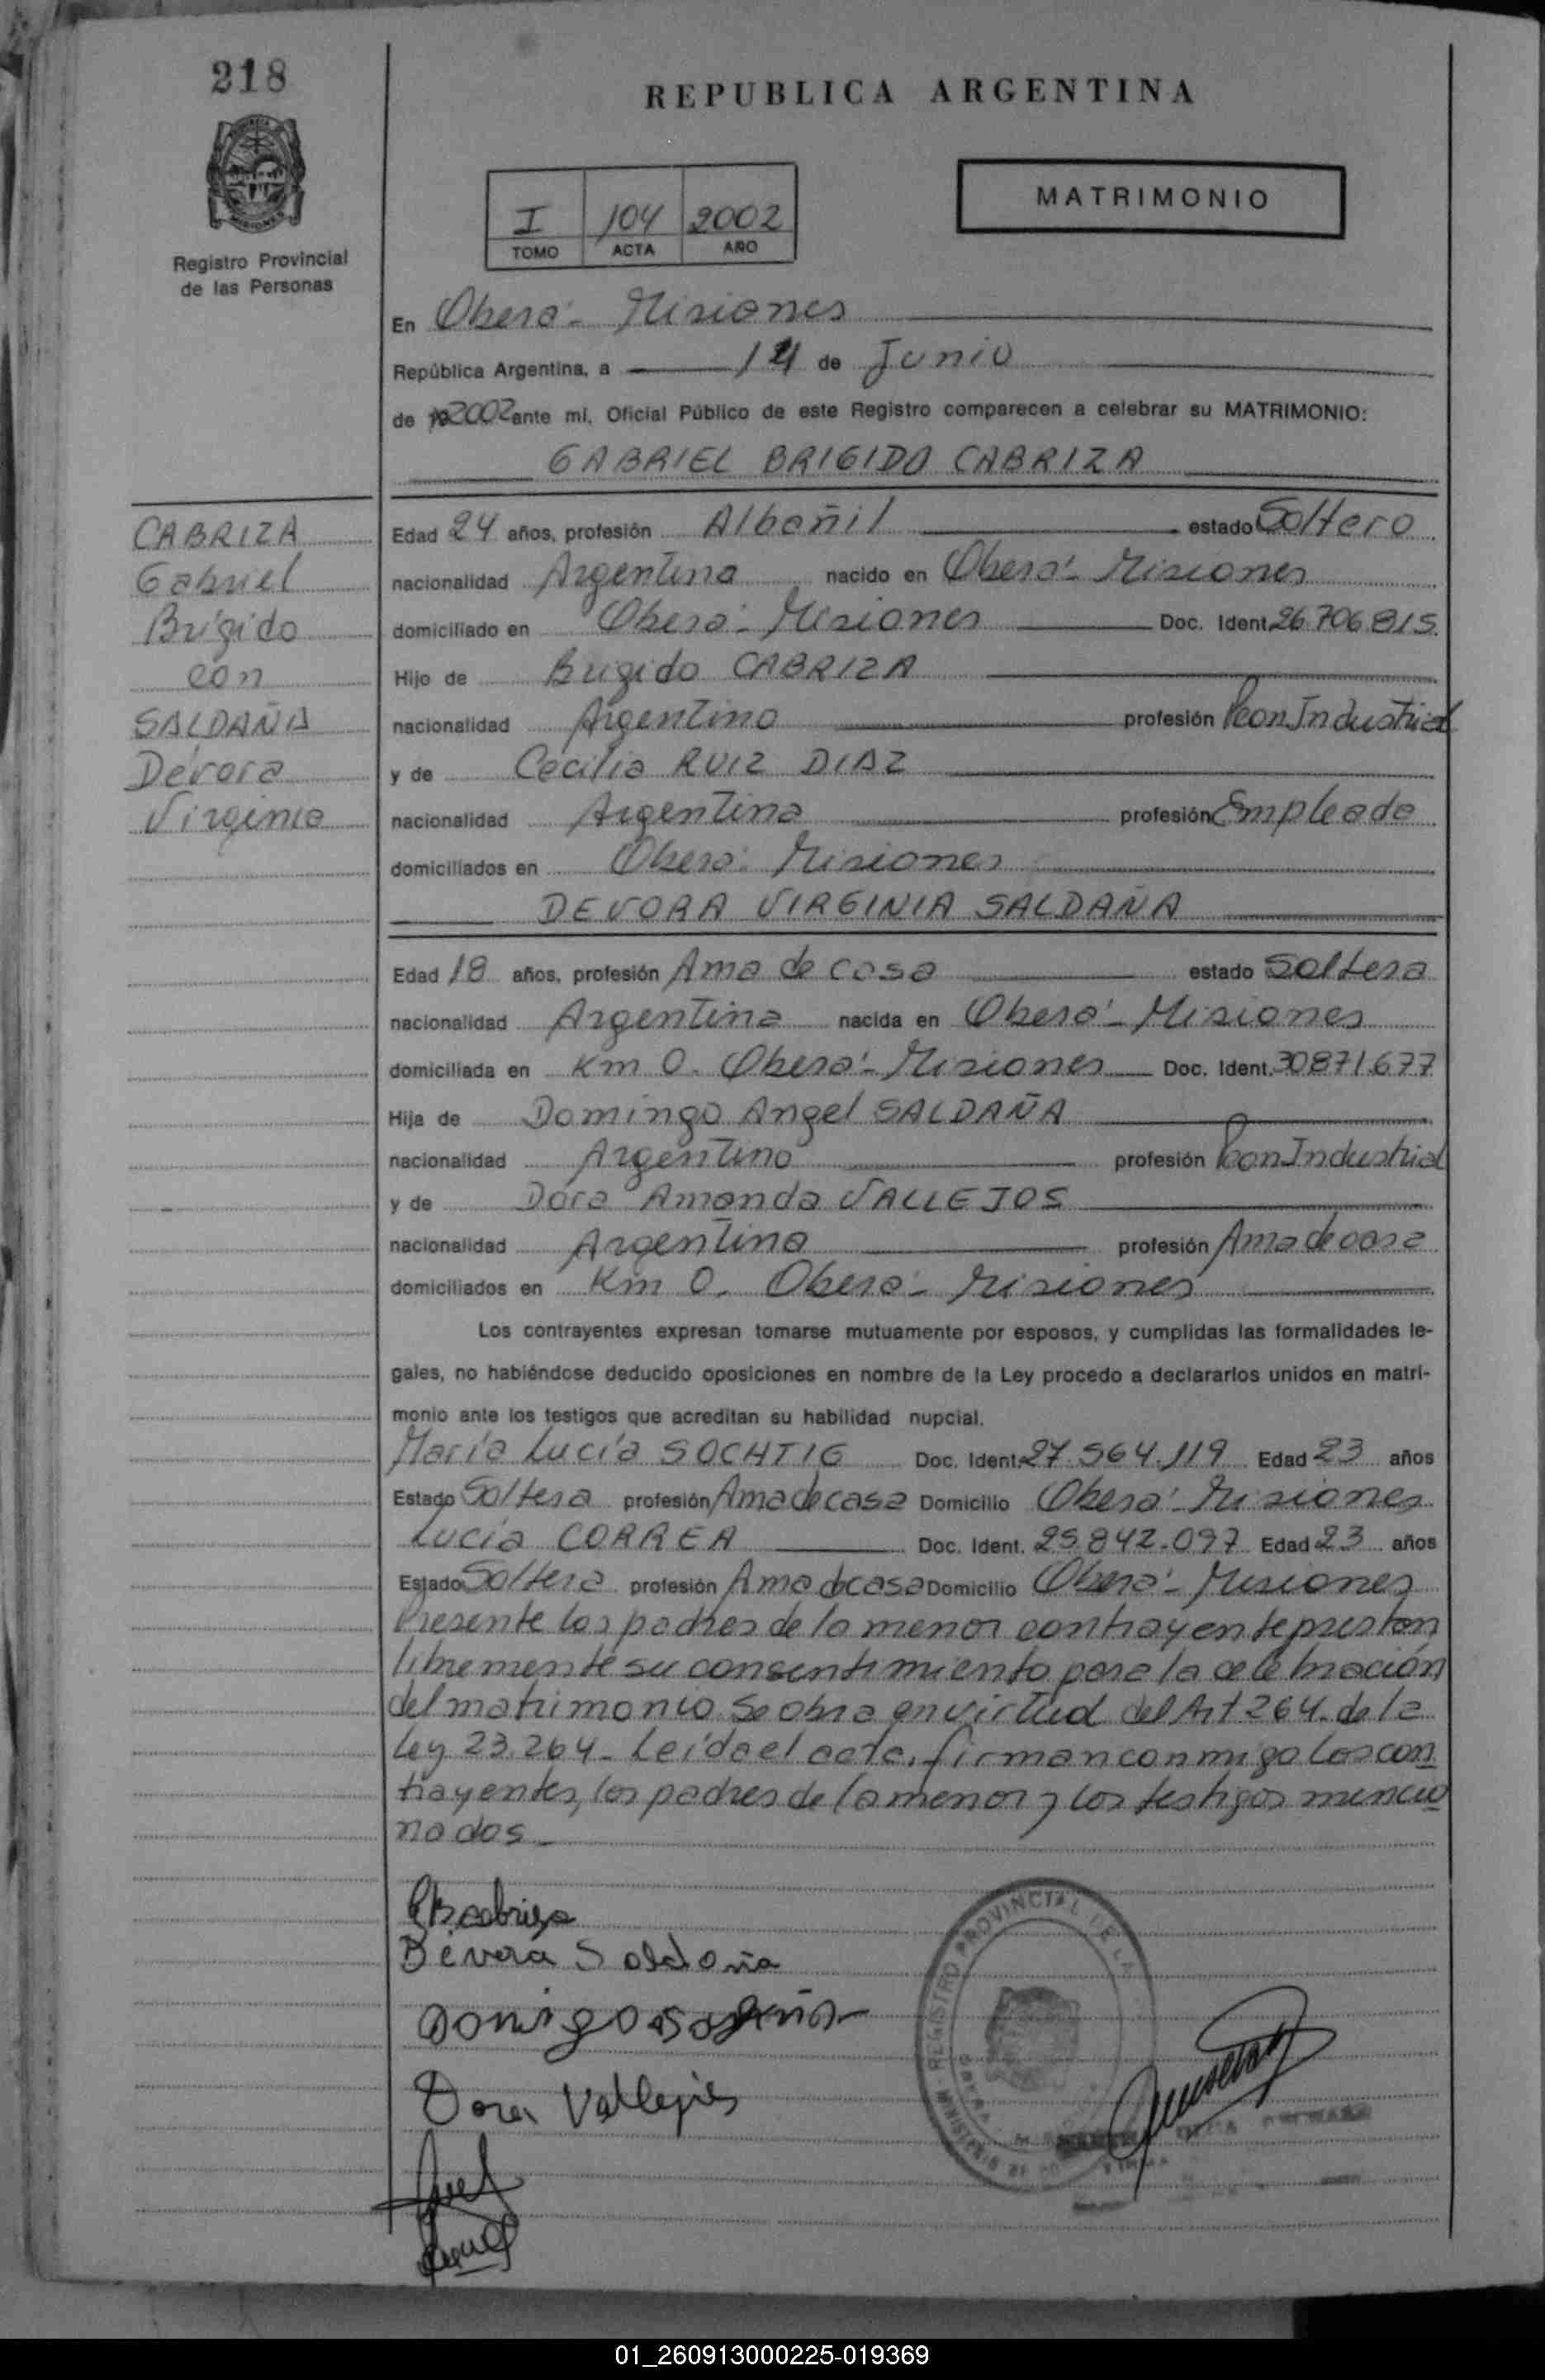 218
REPUBLICA ARGENTINA
Registro Provincial
de las Personas
I 104 2002
TOMO ACTA AÑO
MATRIMONIO
En Oberá - Misiones
República Argentina, a 14 de Junio
de 2002 ante mí, Oficial Público de este Registro comparecen a celebrar su MATRIMONIO:
GABRIEL BRIGIDO CABRIZA
CABRIZA
Gabriel
Brígido
con
SALDAÑA
Dévora
Virginia
Edad 24 años, profesión Albañil estado Soltero
nacionalidad Argentina nacido en Oberá - Misiones
domiciliado en Oberá - Misiones Doc. Ident. 26.706.815
Hijo de Brigido CABRIZA
nacionalidad Argentino profesión Peon Industrial
y de Cecilia RUIZ DIAZ
nacionalidad Argentina profesión Empleada
domiciliados en Oberá - Misiones
DEVORA VIRGINIA SALDAÑA
Edad 18 años, profesión Ama de casa estado Soltera
nacionalidad Argentina nacida en Oberá - Misiones
domiciliada en Km 0. Oberá - Misiones Doc. Ident. 30871.677
Hija de Domingo Angel SALDAÑA
nacionalidad Argentino profesión Peon Industrial
y de Dora Amanda VALLEJOS
nacionalidad Argentina profesión Ama de casa
domiciliados en Km 0. Oberá - Misiones
Los contrayentes expresan tomarse mutuamente por esposos, y cumplidas las formalidades le-
gales, no habiéndose deducido oposiciones en nombre de la Ley procedo a declararlos unidos en matri-
monio ante los testigos que acreditan su habilidad nupcial.
María Lucía SOCHTIG Doc. Ident. 27.564.119 Edad 23 años
Estado Soltera profesión Ama de casa Domicilio Oberá - Misiones
Lucía CORREA Doc. Ident. 25.842.097 Edad 23 años
Estado Soltera profesión Ama de casa Domicilio Oberá - Misiones
Presente los padres de la menor contrayente prestan
libremente su consentimiento para la celebración
del matrimonio. Se obra en virtud del Art 264. de la
Ley 23.264 - Leída el acta, firman conmigo los con
trayentes, los padres de la menor y los testigos mencio
nados -
GBcabriza
Devora Saldaña
Domingo a Saldaña
Dora Vallejos
REGISTRO PROVINCIAL DE LA
01_260913000225-019369